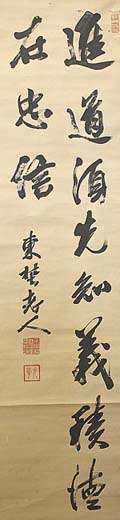 進道須先知義積德
在忠信
東埜老人